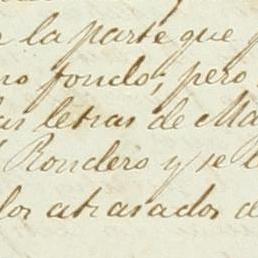 la parte que
fondo; pero
letras de
Rondero y se
los atrasados